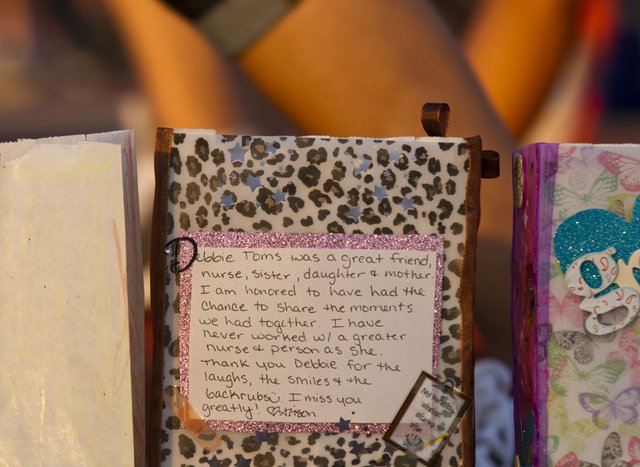 Debbie Toms was a great friend,
nurse, sister, daughter & mother.
I am honored to have had the
chance to share the moments
we had together. I have
never worked w/ a greater
nurse & person as she.
Thank you Debbie for the
laughs, the smiles & the
backrubs. I miss you
greatly!